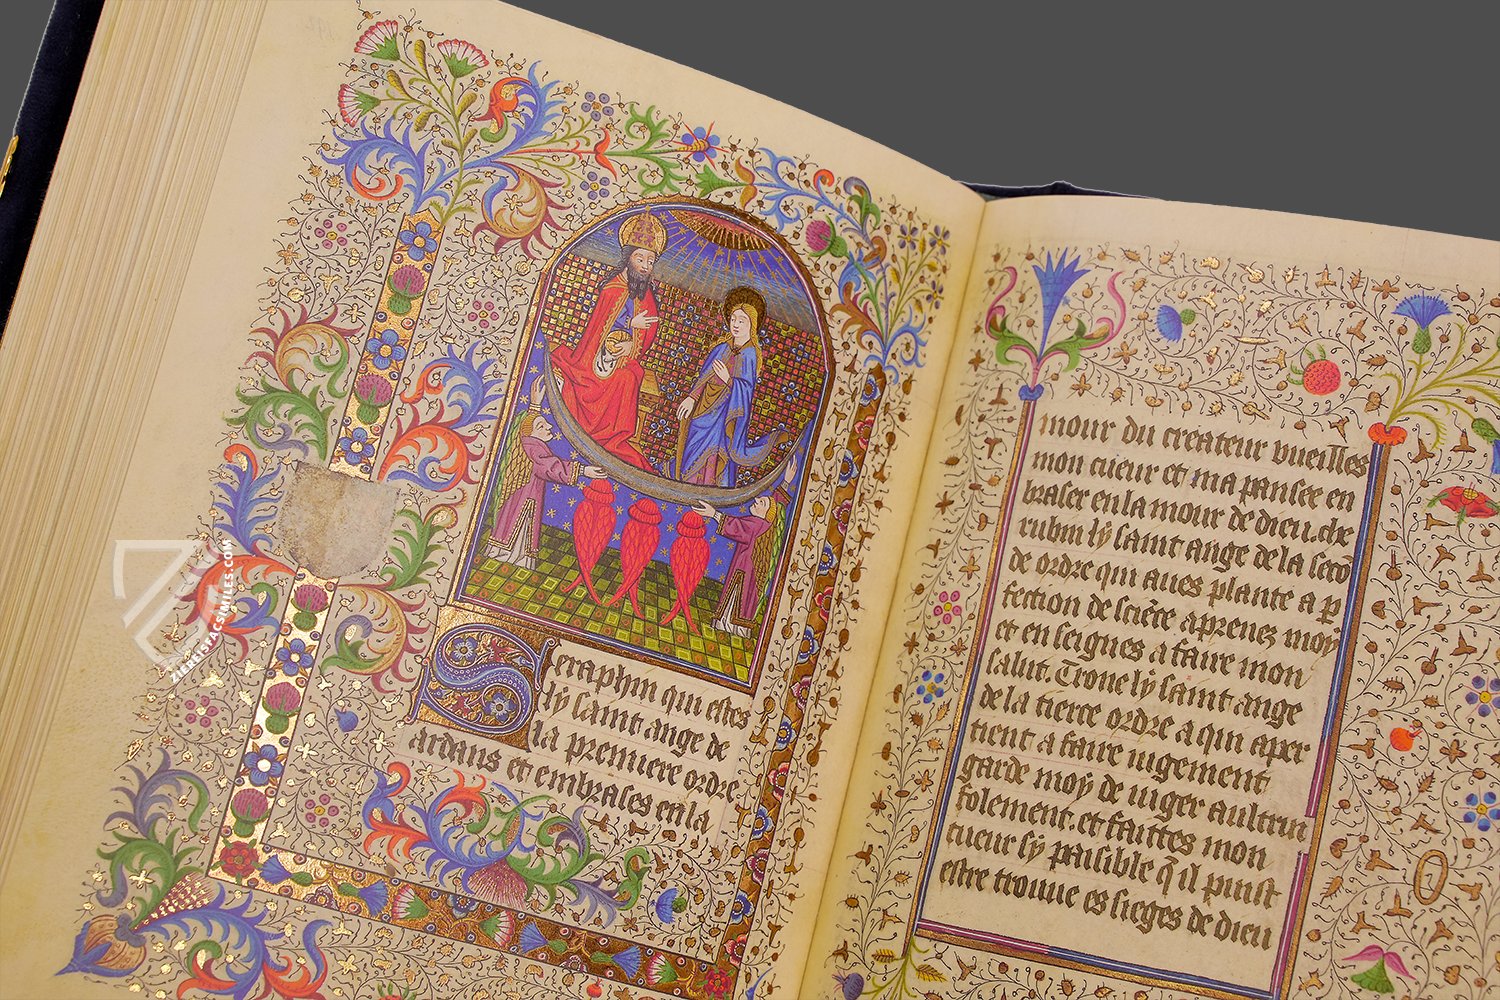 Seraphin qui estes
ly saint ange de
la premiere ordre
ardans et embrases en la
mour du createur vueilles
mon cueur et ma pansee en
braser en la mour de dieu. che
rubin ly saint ange de la seco
de ordre qui aues plante a p
fection de sciece aprenes moy
et en seignes a faire mon
salut. Trone ly saint ange
de la tierce ordre a qui aper
tient a faire iugement
garde moy de iuger aultrui
folement. et faittes mon
cueur sy paisible q̃ il puist
estre trouue es sieges de dieu
ZIEREISFACSIMILES.COM